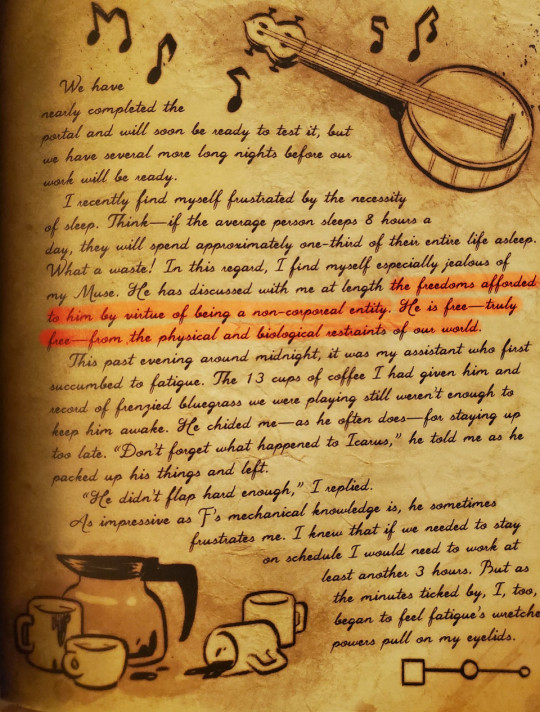 We have
nearly completed the
portal and will soon be ready to test it, but
we have several more long nights before our
work will be ready.
I recently find myself frustrated by the necessity
of sleep. Think—if the average person sleeps 8 hours a
day, they will spend approximately one-third of their entire life asleep.
What a waste! In this regard, I find myself especially jealous of
my Muse. He has discussed with me at length the freedoms afforded
to him by virtue of being a non-corporeal entity. He is free—truly
free—from the physical and biological restraints of our world.
This past evening around midnight, it was my assistant who first
succumbed to fatigue. The 13 cups of coffee I had given him and
record of frenzied bluegrass we were playing still weren't enough to
keep him awake. He chided me—as he often does—for staying up
too late. "Don't forget what happened to Icarus," he told me as he
packed up his things and left.
"He didn't flap hard enough," I replied.
As impressive as F's mechanical knowledge is, he sometimes
frustrates me. I knew that if we needed to stay
on schedule I would need to work at
least another 3 hours. But as
the minutes ticked by, I, too,
began to feel fatigue's wretche
powers pull on my eyelids.